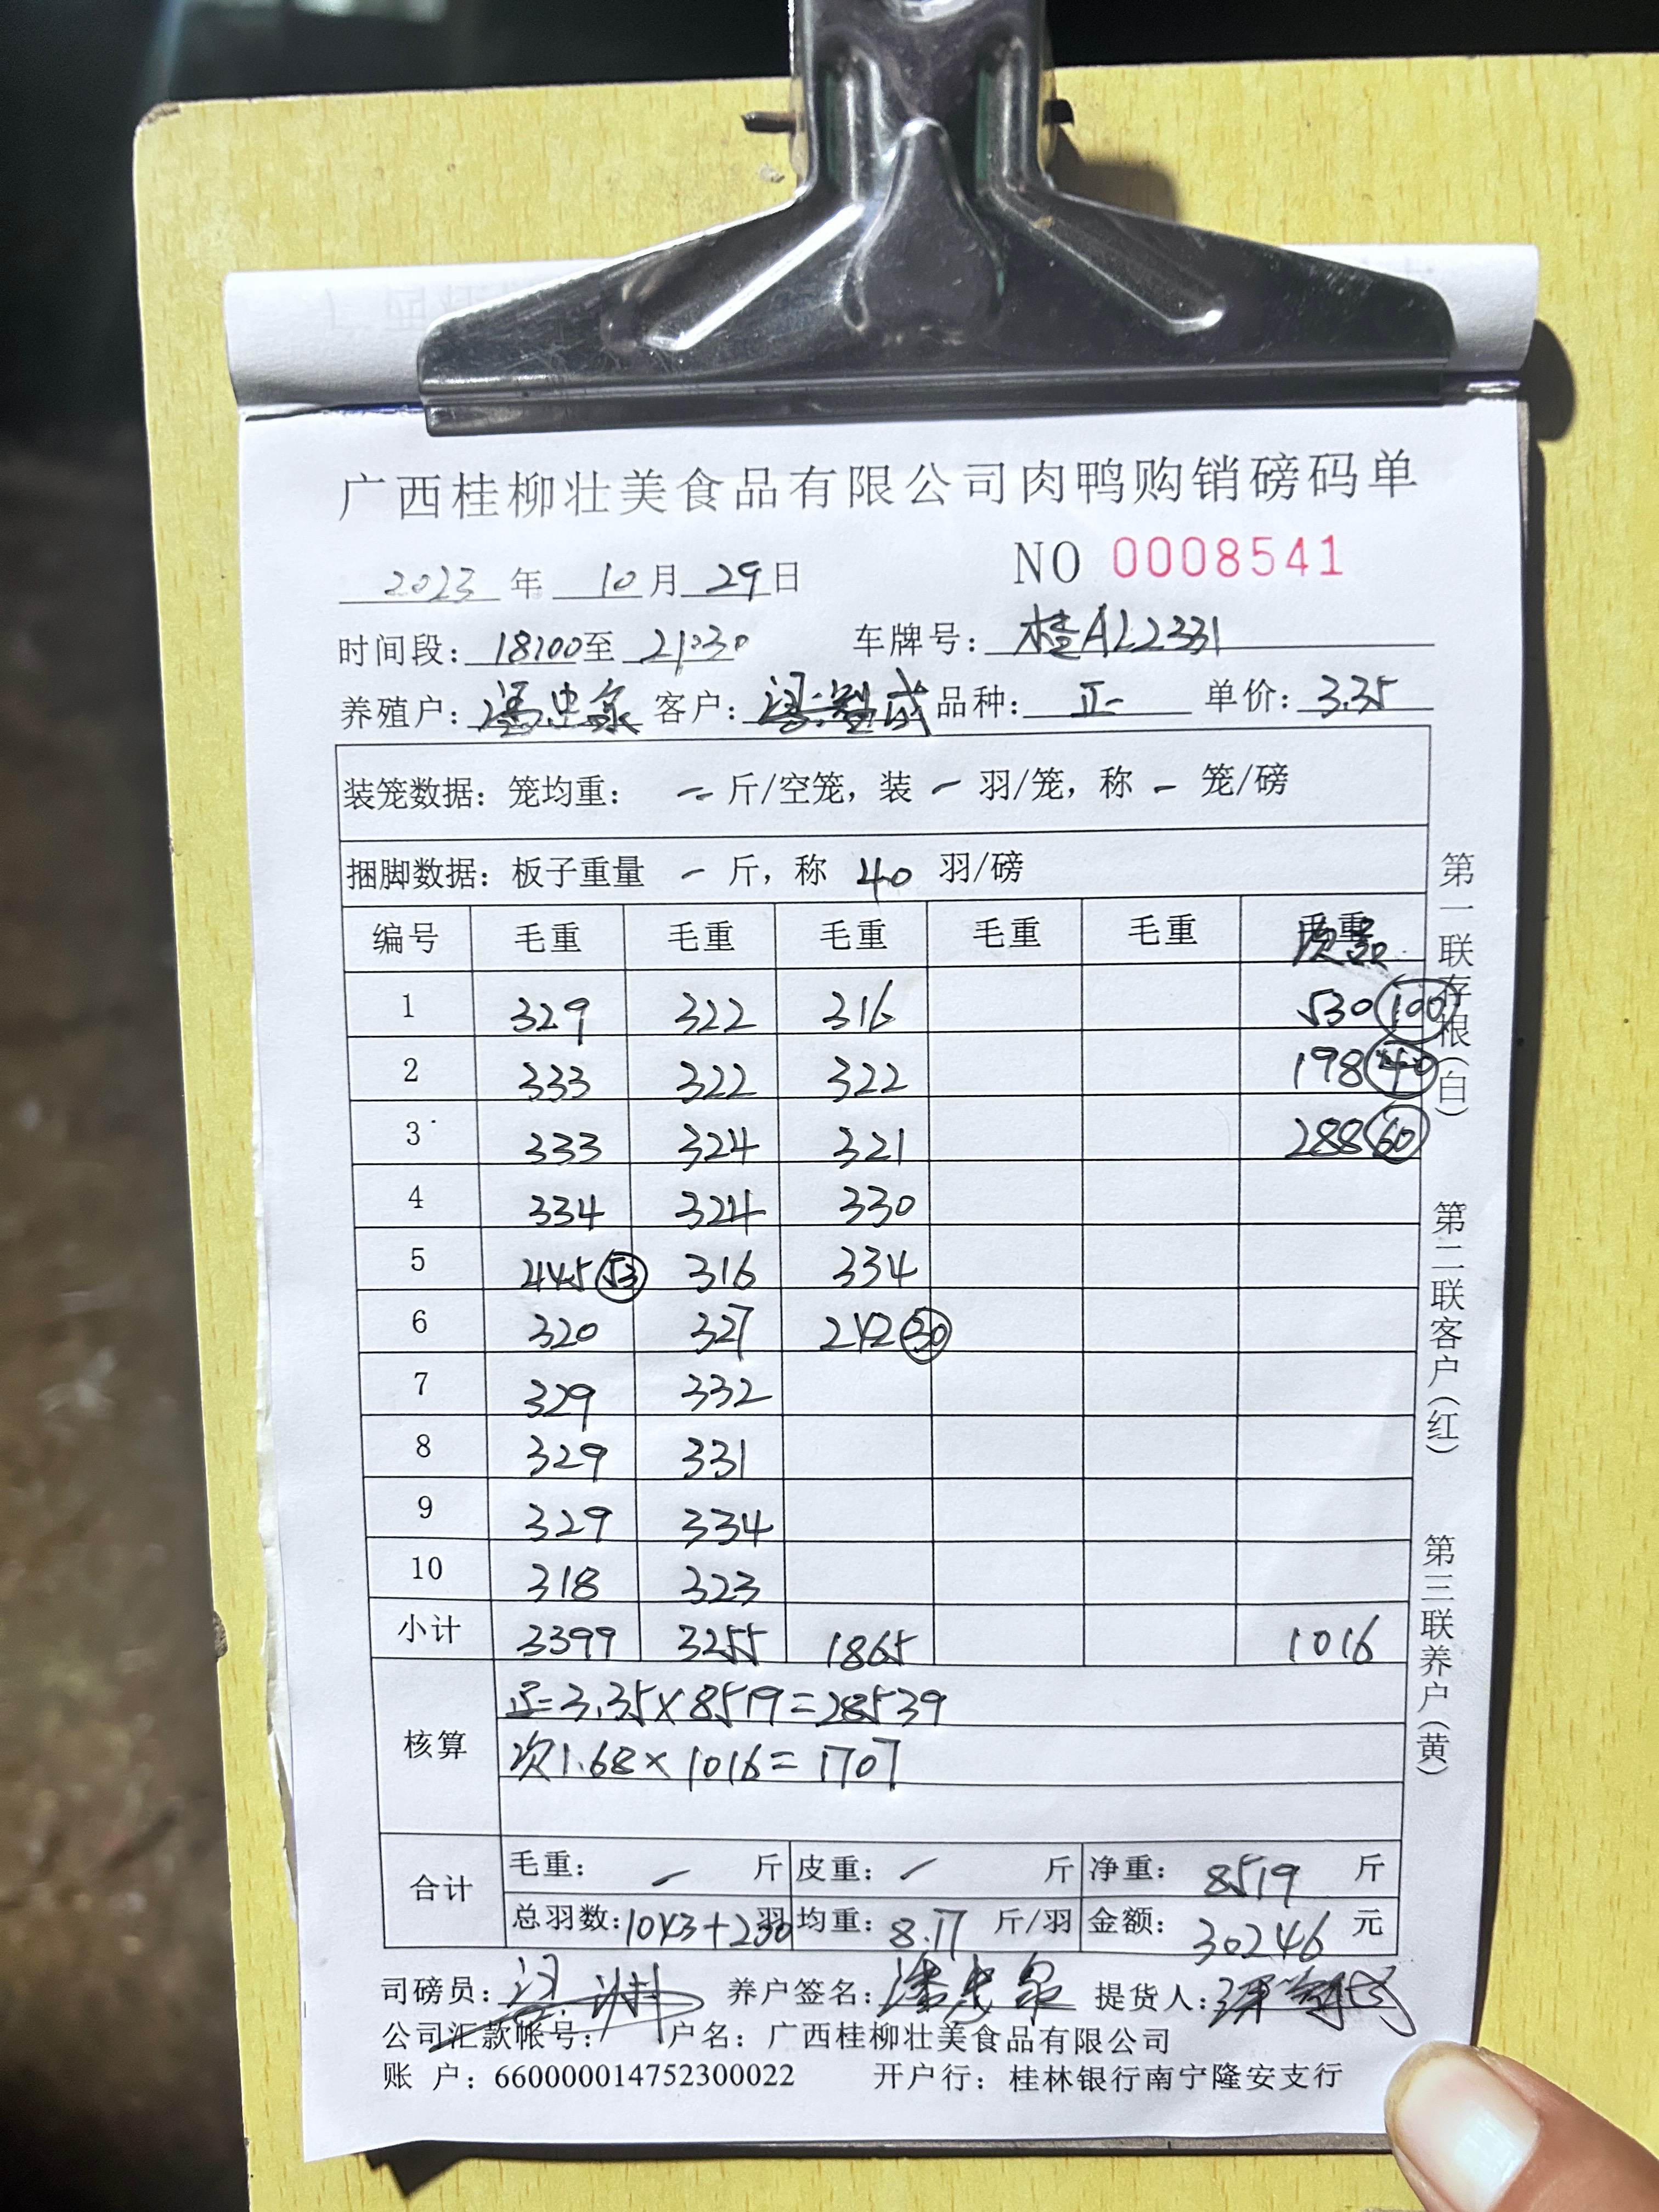 广西桂柳壮美食品有限公司肉鸭购销磅码单
NO 0008541
2023 年 10 月 29 日
时间段: 18:00 至 21:30 车牌号: 桂AL2331
养殖户: 客户: 品种: 正 单价: 3.35
装笼数据: 笼均重: - 斤/空笼, 装 - 羽/笼, 称 - 笼/磅
捆脚数据: 板子重量 - 斤, 称 40 羽/磅
编号 毛重 毛重 毛重 毛重 毛重 毛重 次品
1 329 322 316 530 100
2 333 322 322 198 40
3 333 324 321 288 60
4 334 324 330
5 445 53 316 334
6 320 327 242 30
7 329 332
8 329 331
9 329 334
10 318 323
小计 3399 3255 1865 1016
核算
正=3.35×8519=28539
次1.68×1016=1707
合计
毛重: - 斤 皮重: - 斤 净重: 8519 斤
总羽数: 1043+200 羽 均重: 8.17 斤/羽 金额: 30246 元
司磅员: 养户签名: 提货人:
公司汇款帐号: 户名: 广西桂柳壮美食品有限公司
账 户: 660000014752300022 开户行: 桂林银行南宁隆安支行
第一联存根(白)
第二联客户(红)
第三联养户(黄)